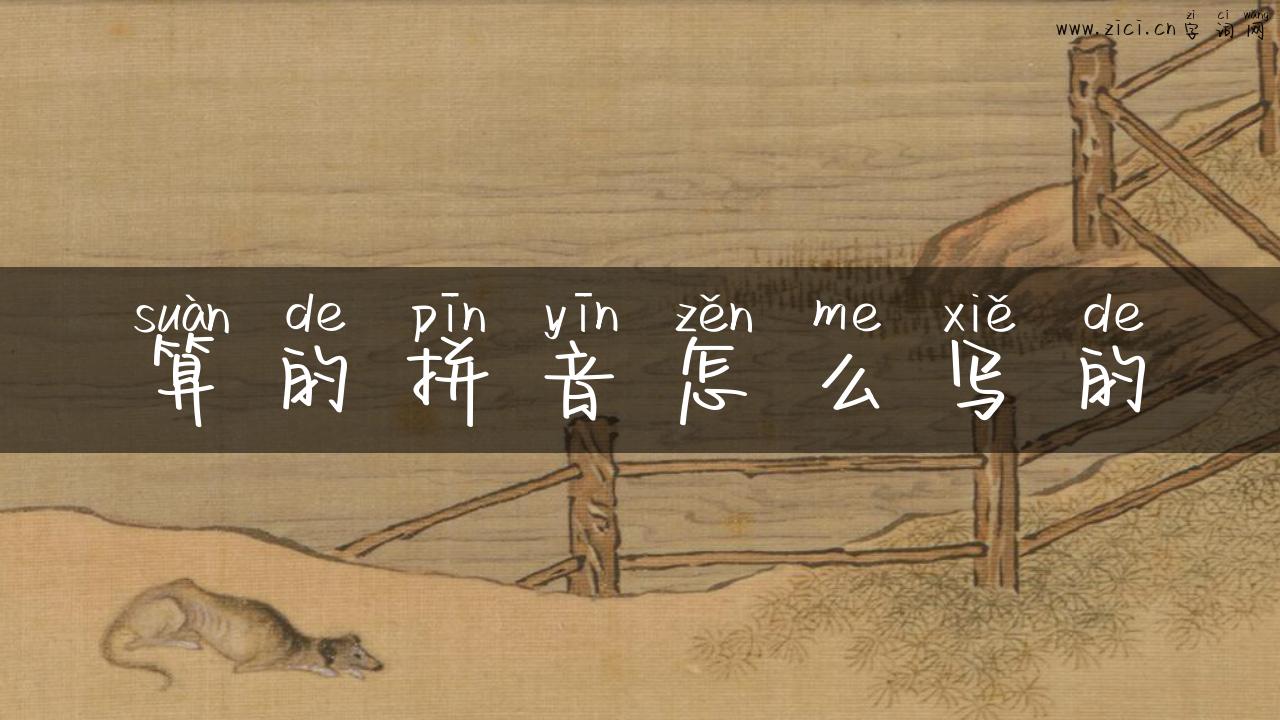 zì cí wǎng
www.zici.cn 字词网
suàn de pīn yīn zěn me xiě de
算的拼音怎么写的